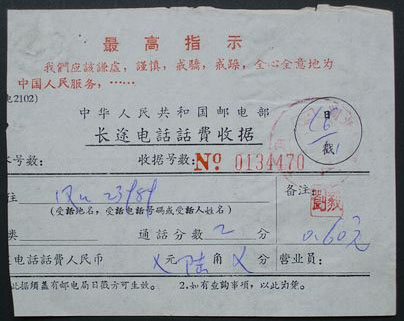 最高指示
我們应該謙虚，謹慎，戒驕，戒躁，全心全意地为
中国人民服务，……
电2102)
中华人民共和国邮电部
长途电話話費收据
日
戳
本号数： 收据号数： No 0134470
注 23989 备注
(受話地名，受話电話号碼或受話人姓名)
劉毅
类 通話分数 2 分 0.60元
电話話費人民币 ㄨ元陆角ㄨ分 营业员：
此据須盖有邮电局日戳方可生效。 2.如有查詢事項，以此为凭。